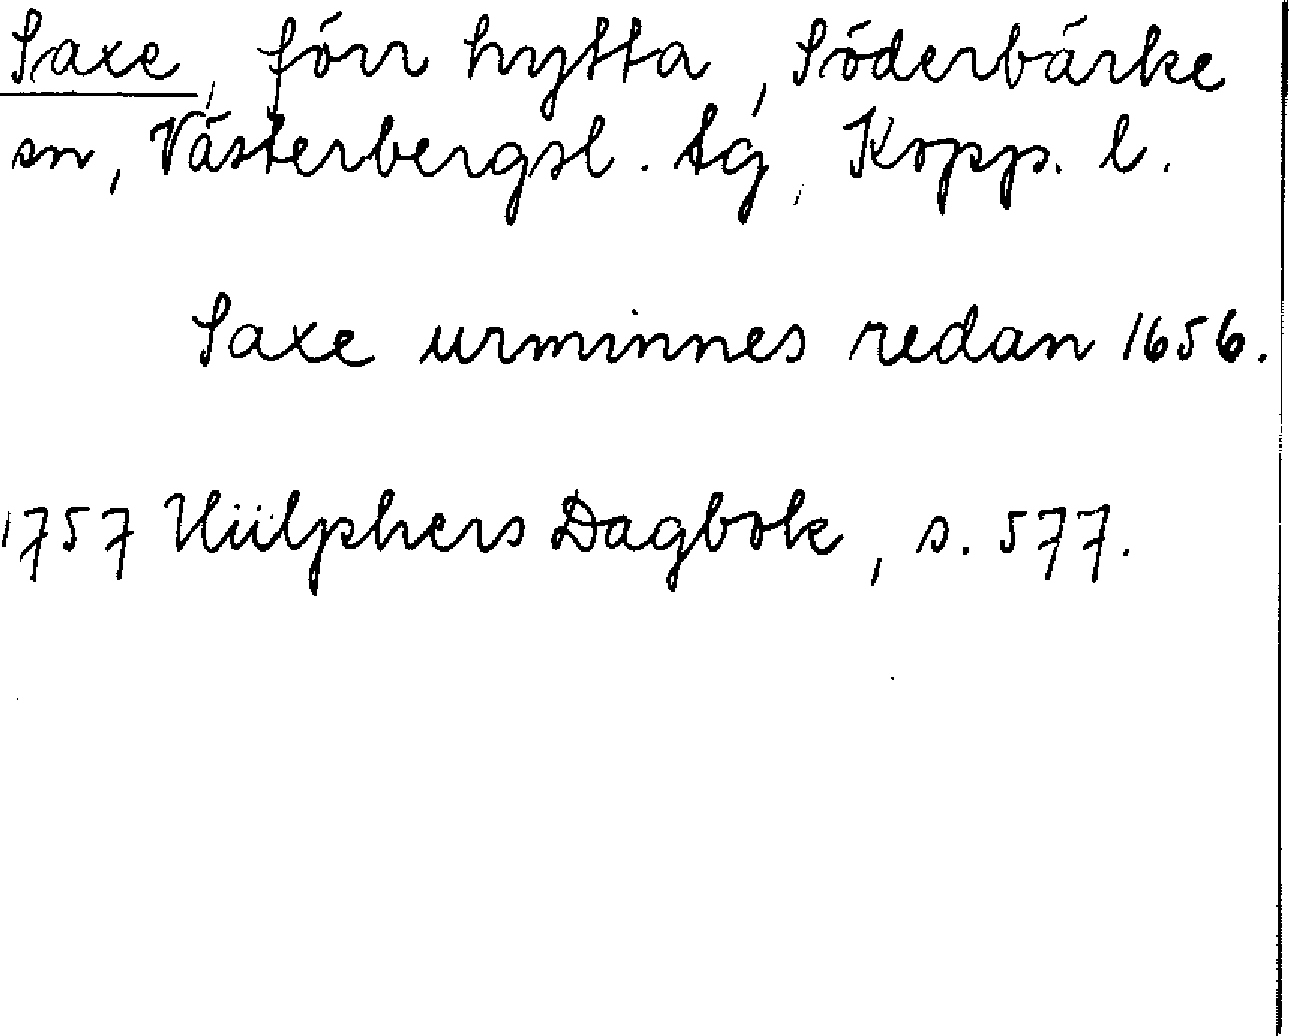 Saxe, förr hytta, Söderbärke
sn, Västerbergsl. tg, Kopp. l.
Saxe urminnes redan 1656.
1757 Hülphers Dagbok, s. 577.